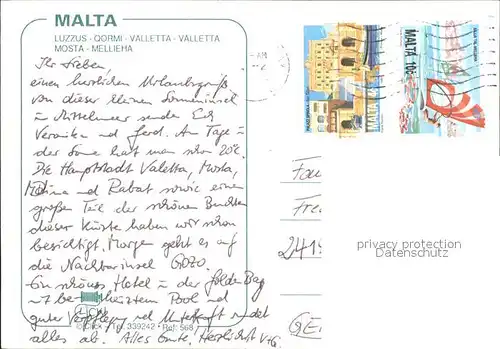 MALTA
LUZZUS - QORMI - VALLETTA - VALLETTA
MOSTA - MELLIEHA
Ihr Lieben,
einen herzlichen Urlaubsgruß
von dieser kleinen Sonneninsel
im Mittelmeer sende Euch
Veronika und Gerd. Am Tage in
der Sonne hat man schon 20°C.
Die Hauptstadt Valetta, Mosta,
Mdina und Rabat sowie einen
großen Teil der schönen Buchten
dieser Küste haben wir schon
besichtigt. Morgen geht es auf
die Nachbarinsel GOZO.
Ein schönes Hotel in der Golden Bay
mit beheiztem Pool und
guter Verpflegung und Unterkunft rundet
alles ab. Alles Gute. Herzlichst V+G.
CLICK
© Click / Tel. 339242 - Ref: 568
AM
MALTA 10c
MALTA
Fam
Fre
2419
GE
privacy protection
Datenschutz